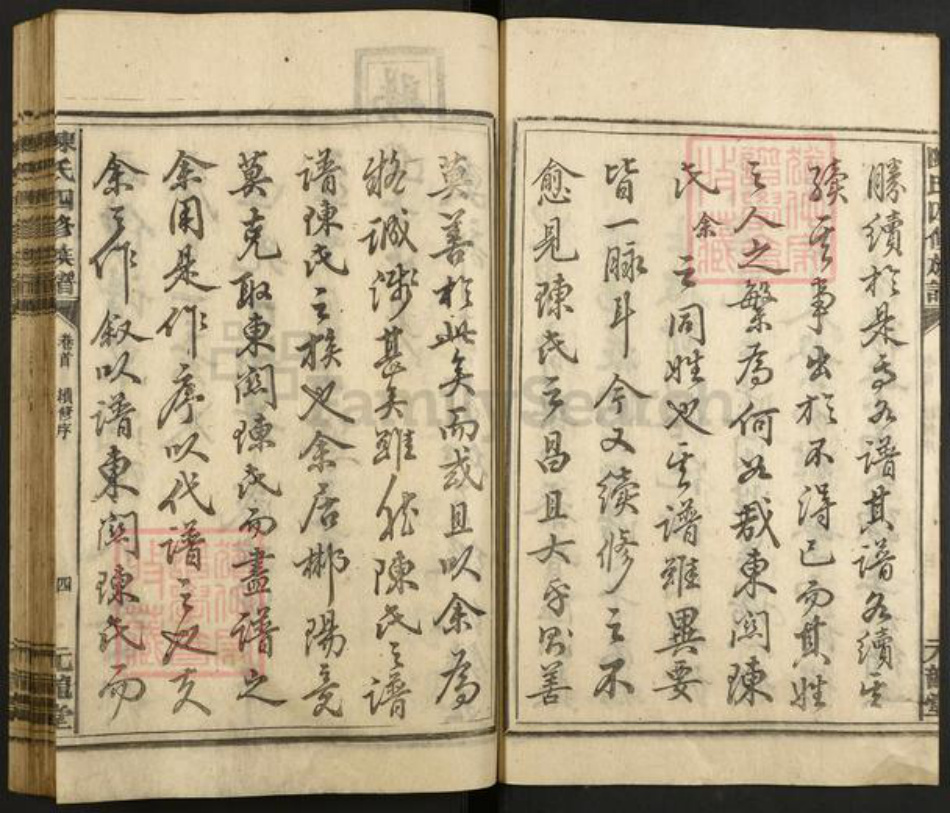 勝續於是各譜其譜各續其
續其事出於不得已而其姓
之人之繁為何如哉東關陳
氏余之同姓也其譜雖異要
皆一脉耳今又續修之不
愈見陳氏之昌且大乎則善
莫善於此矣而或且以余為
務誠涉甚矣雖然陳氏之譜
譜陳氏之族也余居郴陽竟
莫克取東關陳氏而盡譜之
余用是作序以代譜之也夫
余之作敘以譜東關陳氏而
陳氏四修族譜
卷首 續修序
四
元龍堂
FamilySearch